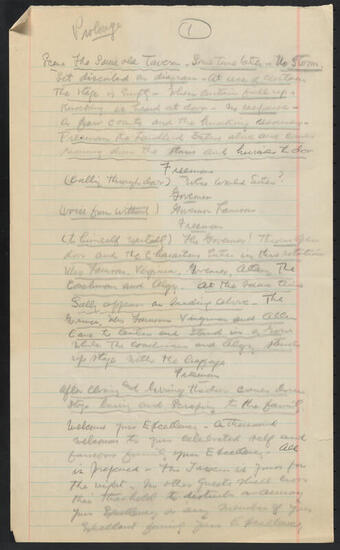 Prologe
1
Scene The Same old Tavern - Some time later - No Storm.
Set discented as diagram - At rise of curtain
the stage is Empty - When curtain full up -
Knocking is heard at door - No response -
A few counts and the Knocking
Freeman the Landlord Enters alone and comes
running down the Stairs and hurries to door
Freeman
(Calling through door) Who Would Enter?
Governor
(Voice from Without) Governor Parsons
Freeman
(To himself ) The Governor! Throws open
door and the Characters enter in this rotation
Mrs Parsons, Virginia, Governor, Allen, The
Coachman and Algy. At the same time
Sally appears on landing above. The
Governor, Mrs Parsons Virginia and Allen
Come to Center and Stand in a row
While The coachman and Algy stand
up stage with the luggage
Freeman
After closing door comes down
Stage bowing and Scraping to the family
Welcome your Excellency - A thousand
welcomes to your celebrated self and
family, your Excellency - All
is prepared - The Tavern is yours for
the night - No other Guests shall cross
this threshold to disturb or
your Excellency or any member of your
Excellent family, your Excellency